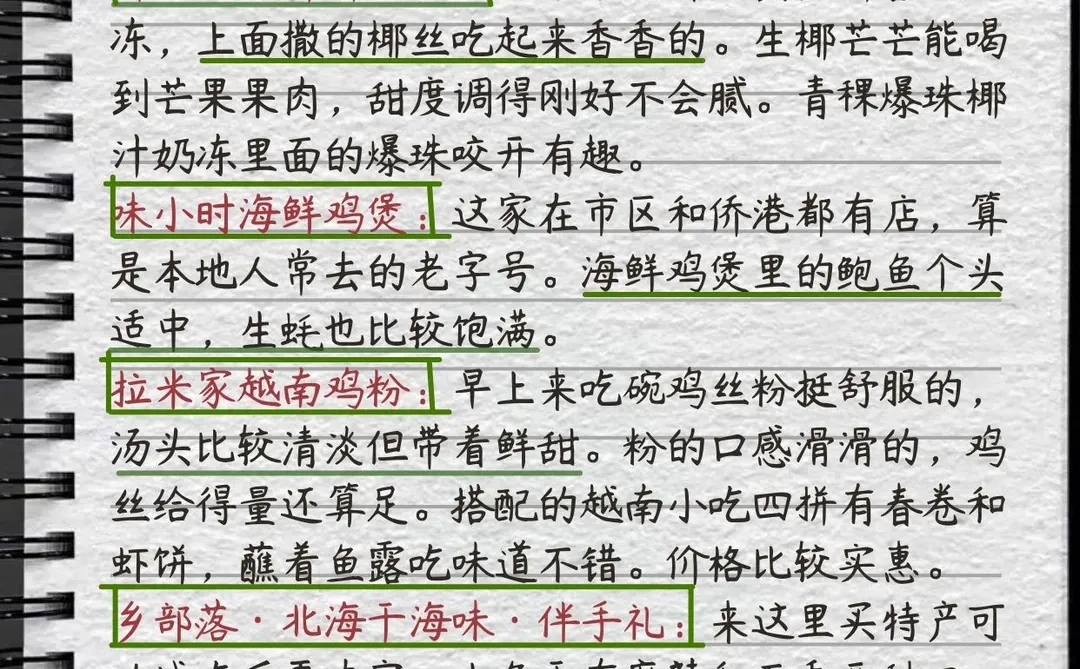 冻，上面撒的椰丝吃起来香香的。生椰芒芒能喝
到芒果果肉，甜度调得刚好不会腻。青稞爆珠椰
汁奶冻里面的爆珠咬开有趣。
味小时海鲜鸡煲：这家在市区和侨港都有店，算
是本地人常去的老字号。海鲜鸡煲里的鲍鱼个头
适中，生蚝也比较饱满。
拉米家越南鸡粉：早上来吃碗鸡丝粉挺舒服的，
汤头比较清淡但带着鲜甜。粉的口感滑滑的，鸡
丝给得量还算足。搭配的越南小吃四拼有春卷和
虾饼，蘸着鱼露吃味道不错。价格比较实惠。
乡部落·北海干海味·伴手礼：来这里买特产可